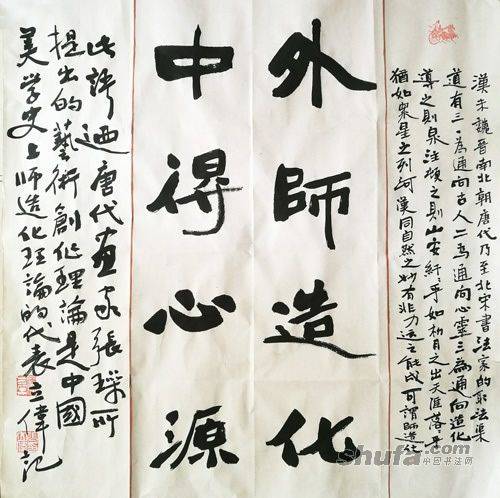 漢末魏晉南北朝唐代乃至北宋書法家的取法渠
道有三一為通向古人二為通向心靈三為通向造化
導之則泉注頓之則山安纤〻乎如初月之出天涯落〻乎
猶如眾星之列河漢同自然之妙有非力運之能成可謂師造化
外師造化
中得心源
此評迺唐代畫家張璪所
提出的藝術創作理論是中國
美學史上師造化理論的代表立偉記
shufa.com
中国书法网